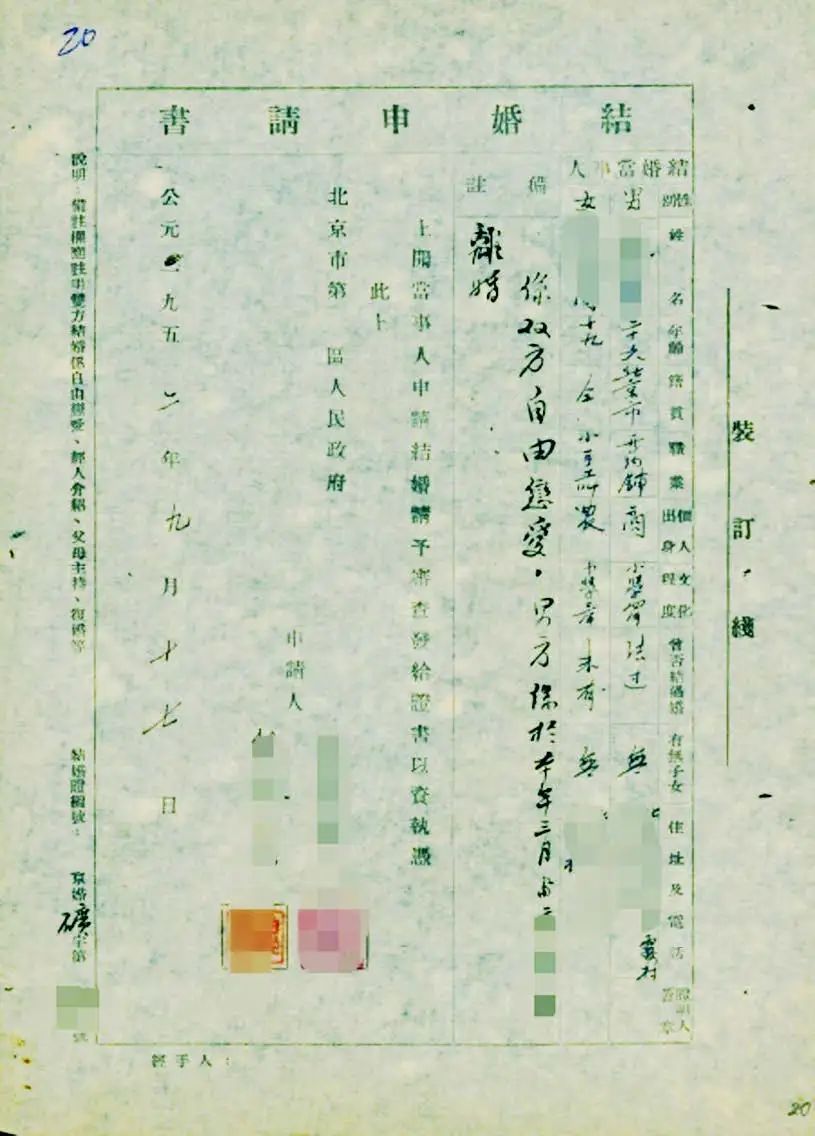 20
裝訂綫
結婚申請書
結婚當事人
性別 姓名 年齡 籍貫 職業 個人出身 文化程度 曾否結過婚 有無子女 住址及電話 證明人蓋章
男 二十六 北京市 商 小學 結过 無
女 十九 仝 农 未有 無
備註
係双方自由恋爱，男方係於本年三月与
離婚
上開當事人申請結婚請予審查發給證書以資執憑
此上
北京市第 區人民政府
申請人
公元一九五二年九月十七日
說明：備註欄應註明雙方結婚係自由戀愛、經人介紹、父母主持、復婚等
結婚證編號： 京婚礦字第 號
經手人：
20